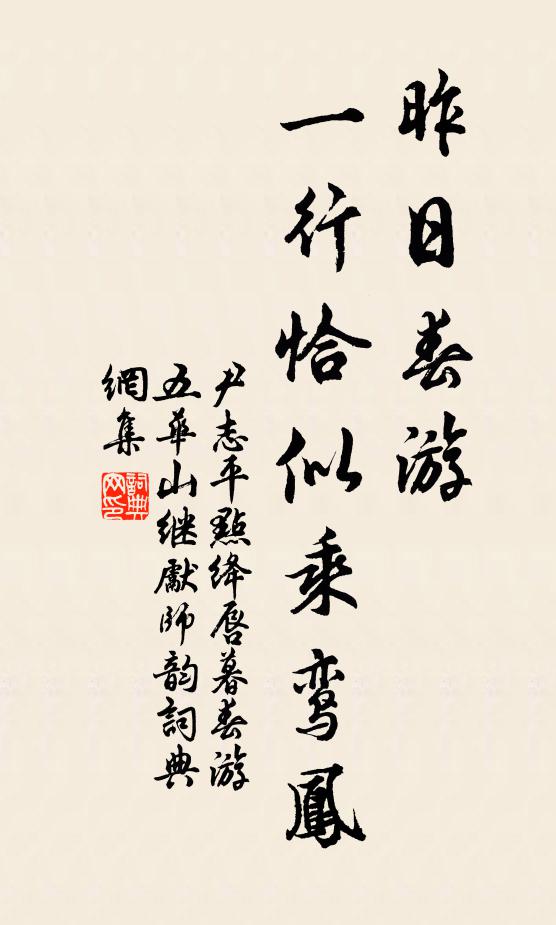 昨日春游
一行恰似乘鸾鳳
尹志平點绛唇暮春游
五華山继獻师韵詞典
網集
詞典
网印